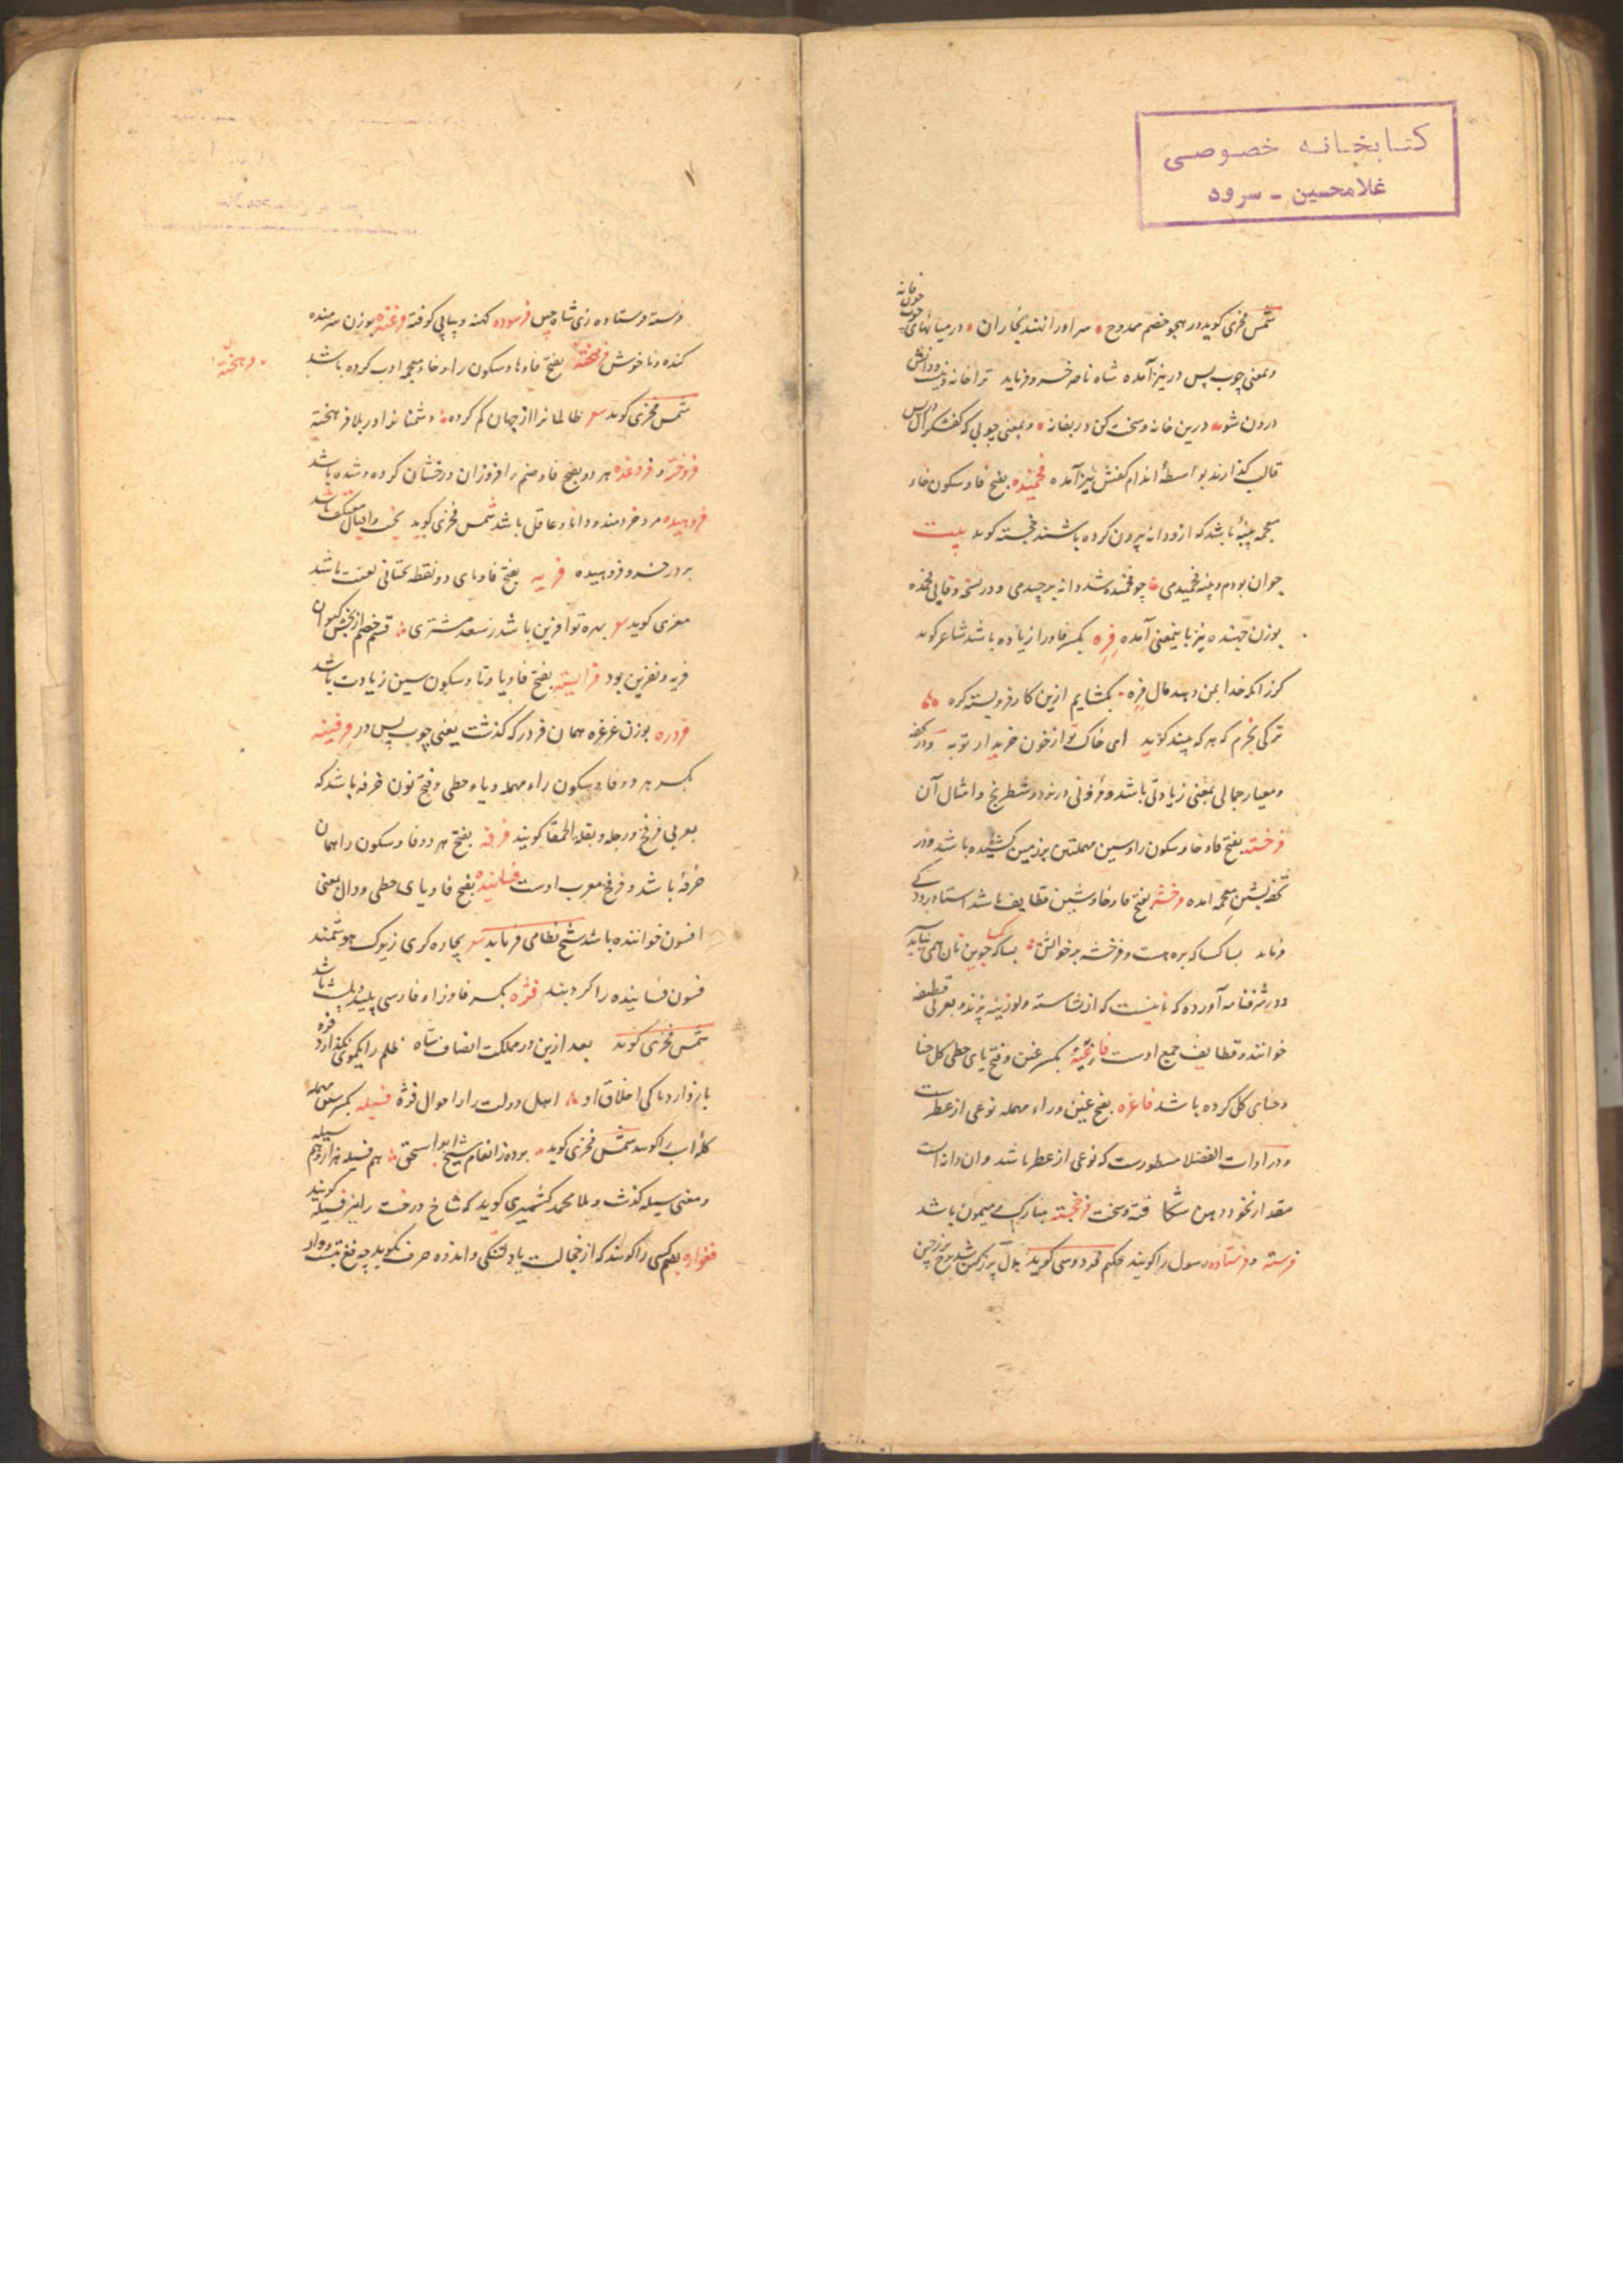 کتابخانه خصوصی
غلامحسین - سرود
شمس فخری کوید در هجو خصم ممدوح سر او را نند نجاران در میانهای چوب چون فانه
و بمعنی چوب پس در نیز آمده شاه ناصر خسرو فرماید ترا خانه دینست و دانش
درون شو درین خانه و سخت کن در بفانه و بمعنی چوبی که کفشکران در پس
قالب کذارند بواسطهٔ اندام کفش نیز آمده فخمیده بفتح فا و سکون خاء
معجمه پنبهٔ باشد که از و دانه بیرون کرده باشند خجسته کوید بیت
جوان بودم و پنبه فخمیدمی چو فخمیده شد دانه برچیدمی و در نسخه وفایی فخنده
بوزن خبنده نیز باینمعنی آمده فره بکسر فا و را زیاده باشد شاعر کوید
کرزانکه خدا بمن دهد مال فره بکشایم ازین کار فروبسته کره
ترکی بخرم که هر که بیند کوید ای خاک تو از خون خریدار تو به و در تحفه
و معیار جمالی بمعنی زیادتی باشد و فزونی در نرد و شطرنج و امثال آن
فرخسته بفتح فا و خا و سکون را و سین مهملتین بر زمین کشیده باشد و در
تحفه بشین معجمه آمده فرخشه بفتح فا و خا و شین قطایف باشد استاد رودکی
فرماید بسا کسا که بره است و فرخشه بر خوانش بسا کسا که جوین نان همی نیابد
و در شرفنامه آورده که نانیست که از نشاسته و لوزینه پزند و بعربی قطیفه
خوانند و قطایف جمع اوست فاغیه بکسر غین و فتح یای حطی کل حنا
و حنای کل کرده باشد فاغره بفتح غین و راء مهمله نوعی از عطر است
و در ادات الفضلا مسطورست که نوعی از عطر باشد و آن دانه است
مقدار نخود دهن شکافته و سخت فرخجسته مبارک و میمون باشد
فرسته و فرستاده رسول را کویند حکیم فردوسی کوید
فرسته فرستاده زی شاه چین فرسوده کهنه و پیاپی کوفته فرغنده بوزن شرمنده
کنده و ناخوش فرهخته بفتح فا و ها و سکون را و خاء معجمه ادب کرده باشد
فرهخته
شمس فخری کوید ظالمانرا از جهان کم کرده دشمنانرا در بلا فرهخته
فروخته و فروغده هر دو بفتح فا و ضم را فروزان و رخشان کرده و شده باشد
فرهیده مرد خردمند و دانا و عاقل باشد شمس فخری کوید بخت و اقبال معتکف باشد
بر در خسرو فرهیده فریه بفتح فا و یای دو نقطه تحتانی لعنت باشد
معزی کوید بهره تو آفرین باشد ز سعد مشتری قسم خصم از بخش کیوان
فریه و نفرین بود فرایسته بفتح فا و یا و تا و سکون سین زیادت باشد
فردره بوزن غرغره همان فردر که کذشت یعنی چوب پس در فرفینه
بکسر هر دو فا و سکون راء مهمله و یاء حطی و فتح نون خرفه باشد که
بعربی فرفخ و رجله و بقلة الحمقا کویند فرفه بفتح هر دو فا و سکون را همان
خرفه باشد و فرفخ معرب اوست فسانیده بفتح فا و یای حطی و دال یعنی
افسون خواننده باشد شیخ نظامی فرماید بچاره کری زیرک هوشمند
فسون فساینده را کرد بند فژه بکسر فا و زاء فارسی پلید و پلشت باشد
شمس فخری کوید بعد ازین در مملکت انصاف شاه ظلم را یکموی نکذارد فژه
باز دارد پاکی اخلاق او اهل دولت را ز احوال فژه فسیله بکسر سین مهمله
کلهٔ اسب را کویند شمس فخری کوید برده ز انعام شیخ ابو اسحق هم فسیله هزار و هم سیله
و معنی سیله کذشت و ملا محمد کشمیری کوید که شاخ درخت را نیز فسیله کویند
فغواره بضم کسی را کویند که از خجالت یا دلتنکی و اندوه حرف نکوید چه فغ بتست و وار